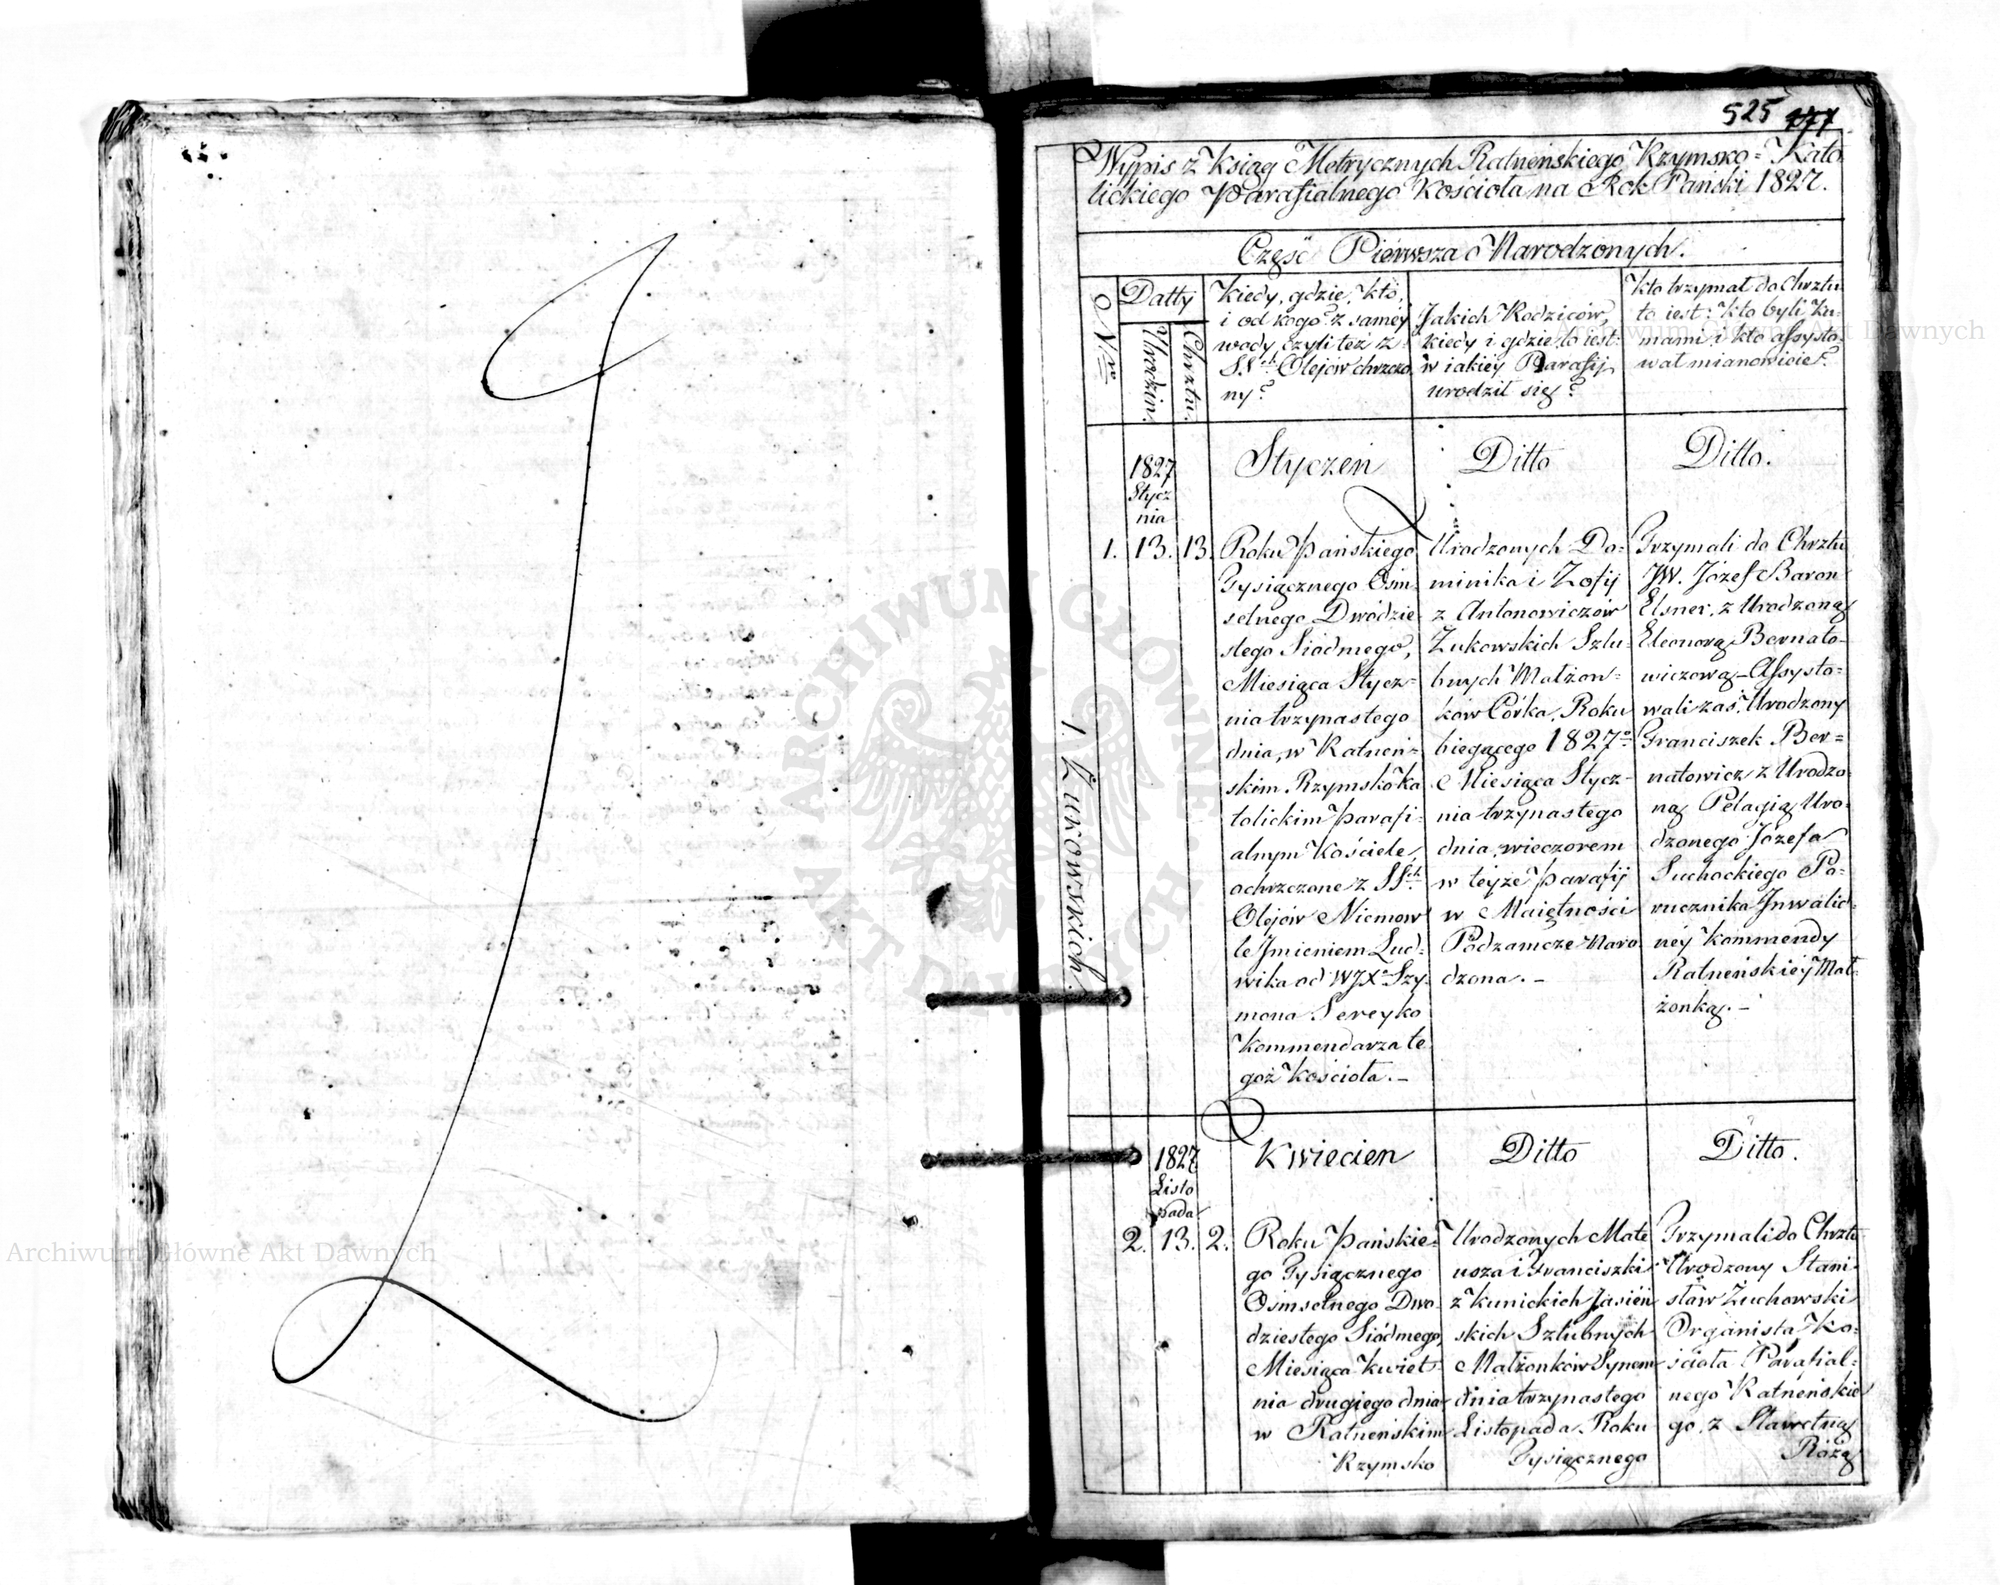 525 777
Wypis z Ksiąg Metrycznych Ratneńskiego Rzymsko=Kato
lickiego Parafialnego Kościoła na Rok Pański 1827.
Część Pierwsza o Narodzonych.
O Nro
Datty
Urodzin.
Chrztu.
Kiedy, gdzie, kto,
i od kogo? z samey
wody, czyli też z
SSch Olejów chrzczo
ny?
Jakich Rodziców,
kiedy i gdzie, to iest
w iakiey Parafij
urodził się?
Kto trzymał do Chrztu
to iest: kto byli Ku-
mami, i kto assysto-
wał mianowicie?
1827
Stycz
nia
Styczeń
Ditto
Ditto.
1. 13. 13.
Roku Pańskiego
Tysiącznego Ośm-
setnego Dwódzie
stego Siódmego,
Miesiąca Stycz-
nia trzynastego
dnia, w Ratneń-
skim Rzymsko ka
tolickim Parafi-
alnym Kościele,
ochrzczone z SSch
Olejów Niemow
le Jmieniem Lud-
wika od WJXa Szy-
mona Sereyko
Kommendarza te
goż Kościoła.–
Urodzonych Do=
minika i Zofij
z Antonowiczów
Żukowskich Szlu-
bnych Małżon-
ków Córka, Roku
biegącego 1827o
Miesiąca Stycz-
nia trzynastego
dnia, wieczorem
w teyże Parafij
w Maiętności
Podzamcze naro
dzona.–
Trzymali do Chrztu
JW. Józef Baron
Elsner, z Urodzoną
Eleonorą Bernato-
wiczową – Assysto=
wali zaś, Urodzony
Franciszek Ber=
natowicz z Urodzo-
ną Pelagią, Uro-
dzonego Józefa
Suchockiego Po-
rucznika Jnwalid-
ney Kommendy
Ratneńskiey Mał-
żonką.–
1. Żukowskich.
1827
Listo
pada
Kwiecien
Ditto
Ditto.
2. 13. 2.
Roku Pańskie-
go Tysiącznego
Ośmsetnego Dwo-
dziestego Siódmego,
Miesiąca Kwiet-
nia drugiego dnia
w Ratneńskim
Rzymsko
Urodzonych Mate
usza i Franciszki
z Kunickich Jasień
skich Szlubnych
Małżonków Synem
dnia trzynastego
Listopada Roku
Tysiącznego
Trzymali do Chrztu
Urodzony Stani-
sław Żuchowski
Organista Ko-
ścioła Parafial-
nego Ratneńskie
go, z Sławetną
Rózą
Archiwum Główne Akt Dawnych
Archiwum Główne Akt Dawnych
ARCHIWUM GŁÓWNE AKT DAWNYCH